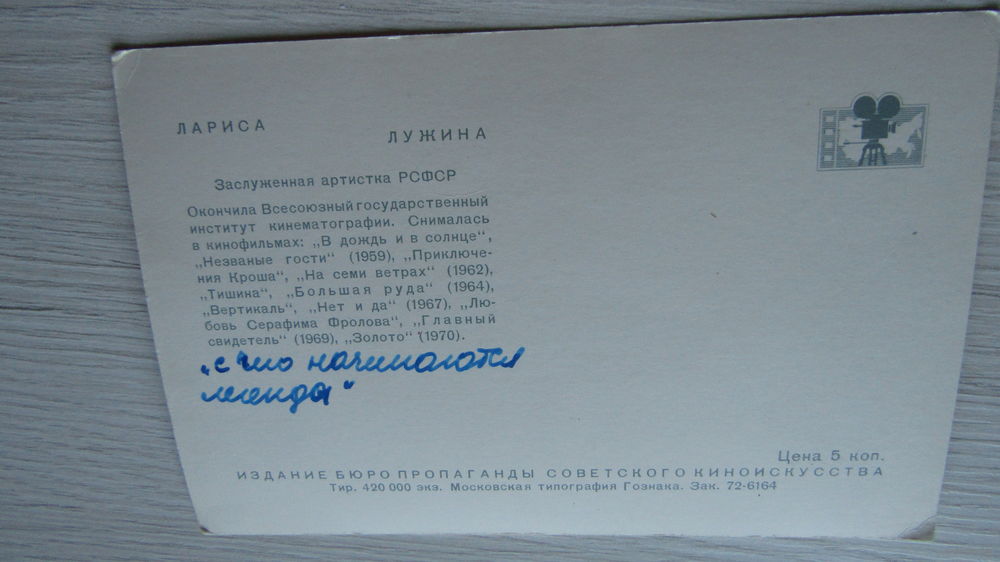 ЛАРИСА
ЛУЖИНА
Заслуженная артистка РСФСР
Окончила Всесоюзный государственный
институт кинематографии. Снималась
в кинофильмах: „В дождь и в солнце“,
„Незваные гости“ (1959), „Приключе-
ния Кроша“, „На семи ветрах“ (1962),
„Тишина“, „Большая руда“ (1964),
„Вертикаль“, „Нет и да“ (1967), „Лю-
бовь Серафима Фролова“, „Главный
свидетель“ (1969), „Золото“ (1970).
„с чго начинаются
легенды“
Цена 5 коп.
ИЗДАНИЕ БЮРО ПРОПАГАНДЫ СОВЕТСКОГО КИНОИСКУССТВА
Тир. 420 000 экз. Московская типография Гознака. Зак. 72-6164